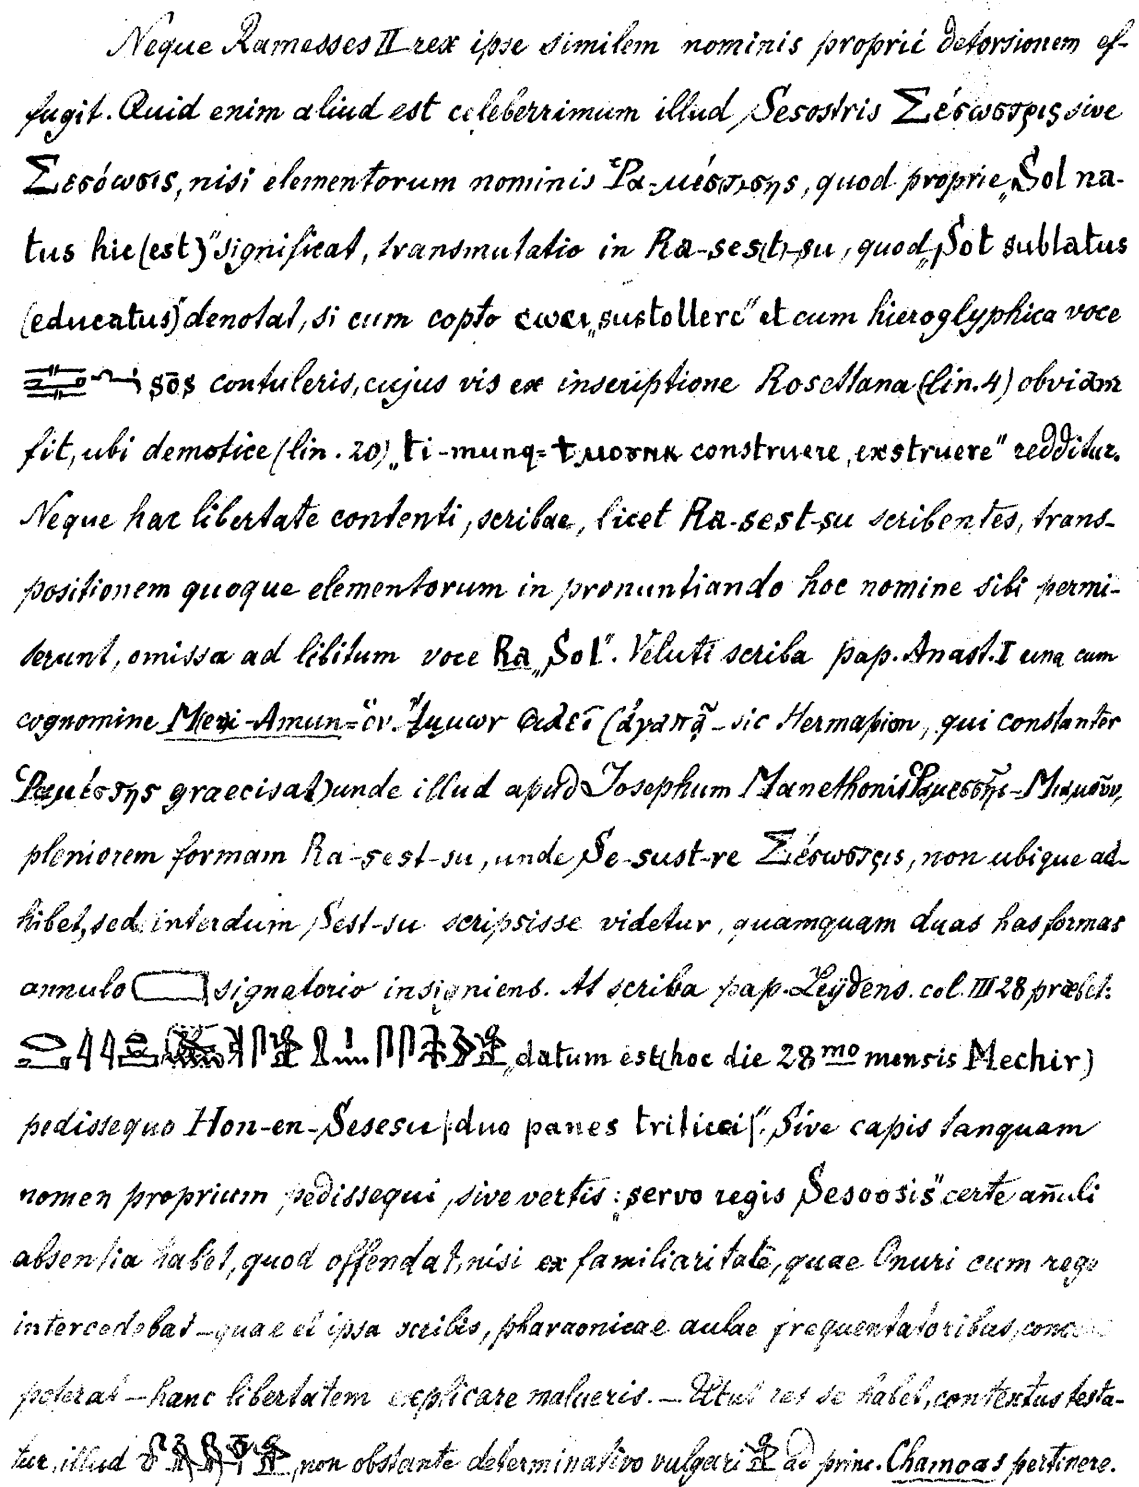 Neque Ramesses II rex ipse similem nominis proprii detorsionem ef-
fugit. Quid enim aliud est celeberrimum illud Sesostris Σέσωστρις sive
Σεσόωσις, nisi elementorum nominis Ῥα-μέσσης, quod proprie „Sol na-
tus hic (est)" significat, transmutatio in Ra-ses(t)-su, quod „Sol sublatus
(educatus)" denotat, si cum copto ⲥⲱⲥⲓ „sustollere" et cum hieroglyphica voce
šōš contuleris, cujus vis ex inscriptione Rosettana (lin. 4) obviam
fit, ubi demotice (lin. 20) „ti-munq = ϯⲙⲟⲩⲛⲕ construere, exstruere" redditur.
Neque hac libertate contenti, scribae, licet Ra-sest-su scribentes, trans-
positionem quoque elementorum in pronuntiando hoc nomine sibi permi-
serunt, omissa ad libitum voce Ra „Sol". Veluti scriba pap. Anast. I una cum
cognomine Meri-Amun = ὃν Ἄμμων φιλεῖ (ἀγαπᾷ – sic Hermapion, qui constanter
Ῥαμέσσης graecisat) unde illud apud Josephum Manethonis Ῥαμεσσῆς-Μιαμοῦν,
pleniorem formam Ra-sest-su, unde Se-sust-re Σέσωστρις, non ubique ad-
hibet, sed interdum Sest-su scripsisse videtur, quamquam duas has formas
annulo signatorio insigniens. At scriba pap. Leydens. col. III 28 præbet:
„datum est (hoc die 28mo mensis Mechir)
pedissequo Hon-en-Sesesu | duo panes triticei |". Sive capis tanquam
nomen proprium pedissequi, sive vertis: „servo regis Sesoosis" certe anuli
absentia habet, quod offendat, nisi ex familiaritate, quae Onuri cum rege
intercedebat – quae et ipsa scribis, pharaonicae aulae frequentatoribus,
poterat – hanc libertatem explicare malueris. – Utut res se habet, contextus testa-
tur, illud non obstante determinativo vulgari ad princ. Chamoas pertinere.